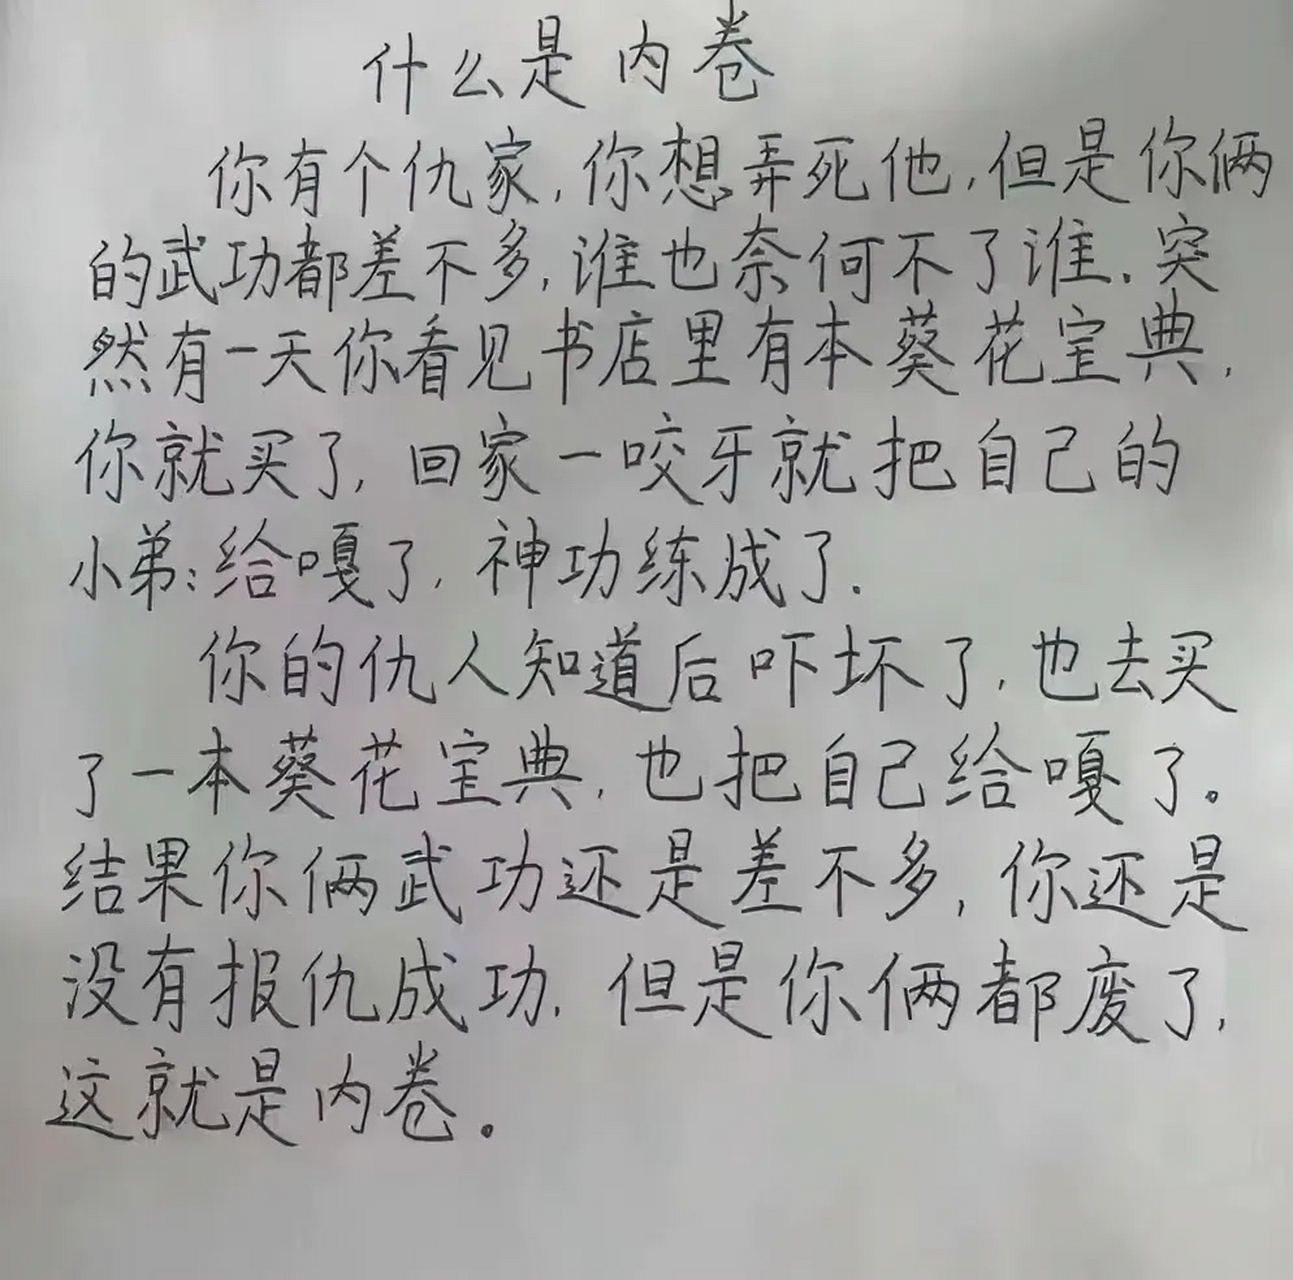 什么是内卷
你有个仇家,你想弄死他,但是你俩
的武功都差不多,谁也奈何不了谁.突
然有一天你看见书店里有本葵花宝典,
你就买了,回家一咬牙就把自己的
小弟:给嘎了,神功练成了.
你的仇人知道后吓坏了,也去买
了一本葵花宝典,也把自己给嘎了。
结果你俩武功还是差不多,你还是
没有报仇成功,但是你俩都废了,
这就是内卷。